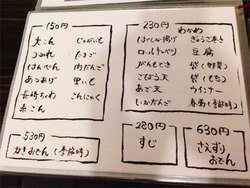 150円
大こん じゃがいも
つみれ たまご
はんぺん 肉だんご
あつあげ 里いも
長持ちわ こんにゃく
糸こん
230円
わかめ
はくさい揚げ ぎょうざ巻き
ロールキャベツ 豆腐
がんもどき 袋(野菜)
ごぼう天 袋(もち)
あご天 ウインナー
いかだんご 春菊(季節時)
530円
かきおでん(季節時)
280円
すじ
630円
さえずり
おでん